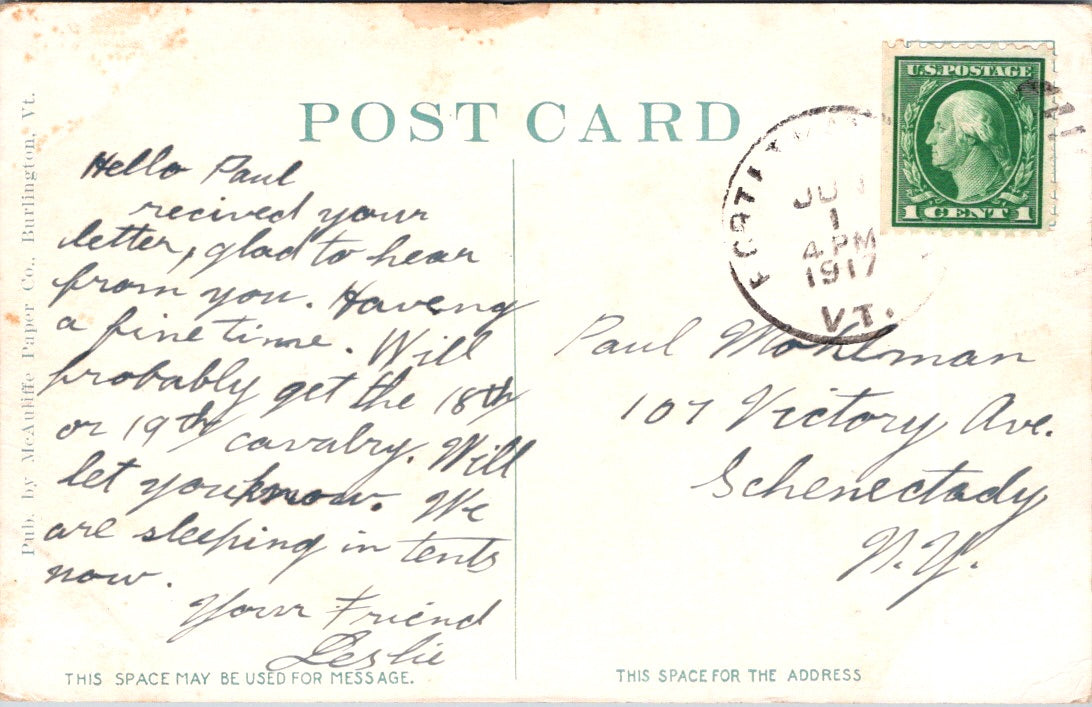 POST CARD
U.S. POSTAGE
1 CENT 1
JU
1
4 PM
1917
VT.
Pub. by McAuliffe Paper Co., Burlington, Vt.
Hello Paul
recived your
letter, glad to hear
from you. Haveng
a fine time. Will
probably get the 18th
or 19th cavalry. Will
let you know. We
are sleeping in tents
now.
Your Friend
Leslie
THIS SPACE MAY BE USED FOR MESSAGE.
Paul Mohlman
107 Victory Ave.
Schenectady
N.Y.
THIS SPACE FOR THE ADDRESS